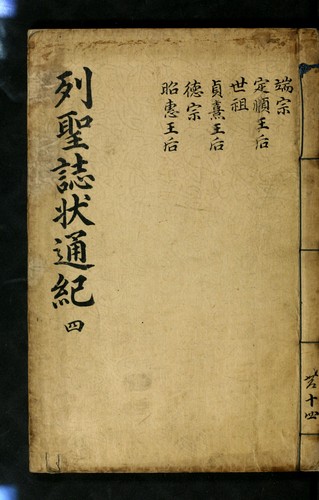 端宗
定順王后
世祖
貞熹王后
德宗
昭惠王后
列聖誌狀通紀 四
共十四